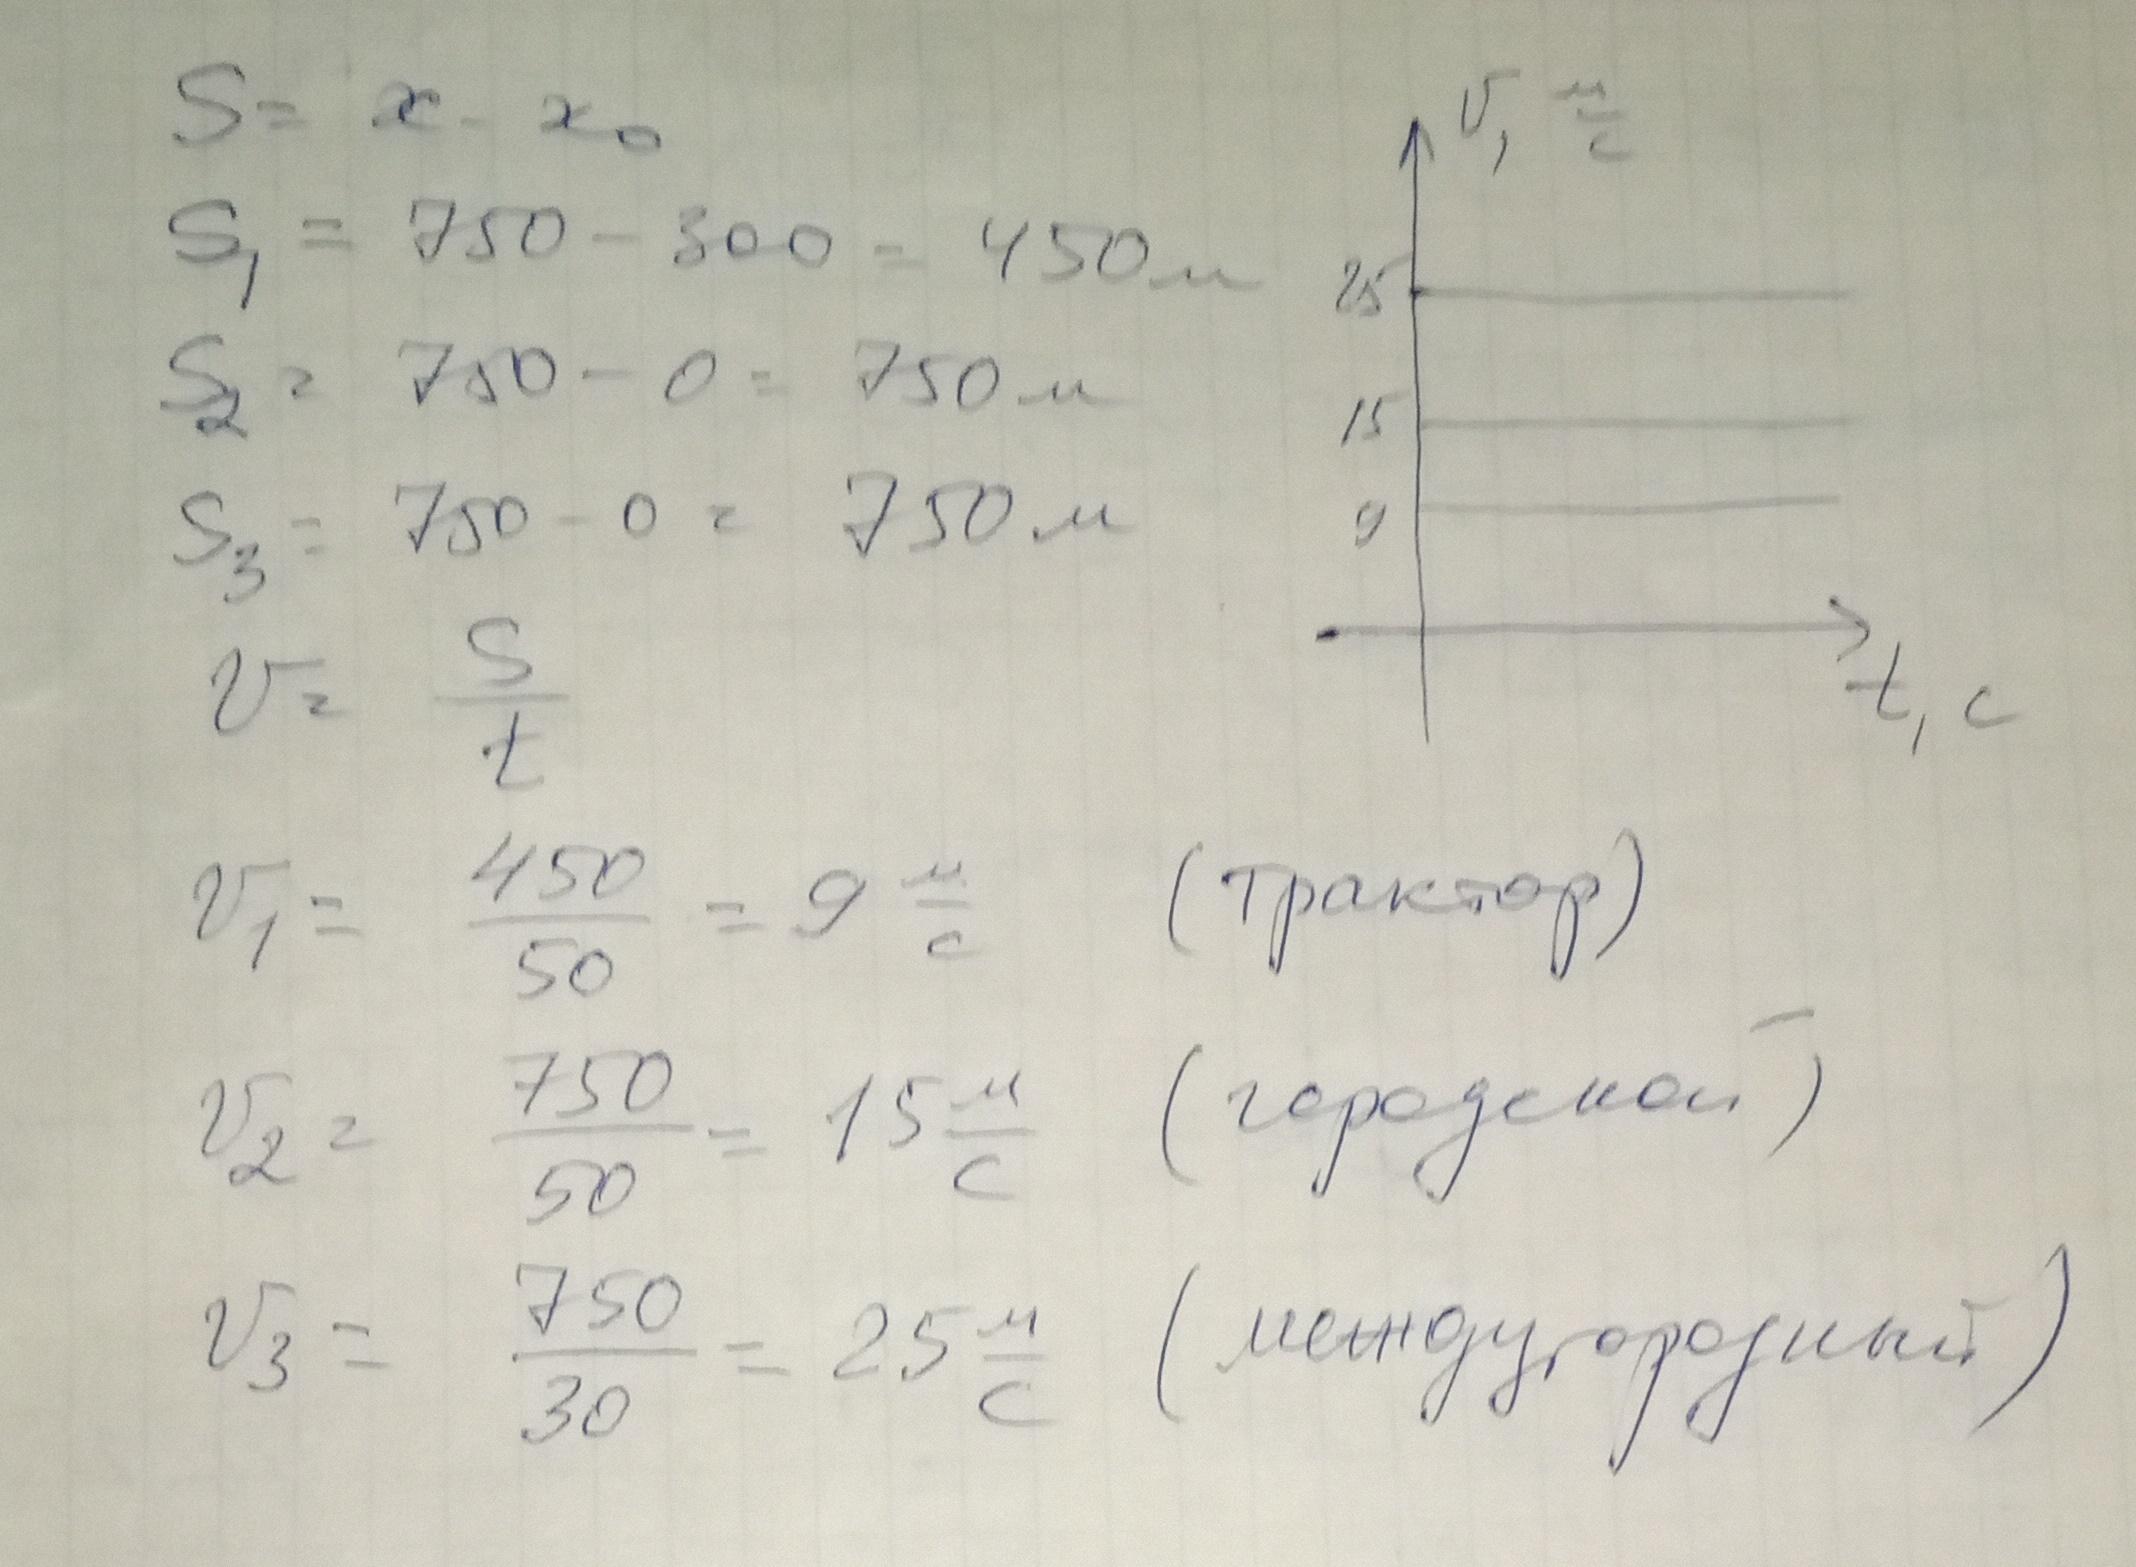 S = x - x₀
S₁ = 750 - 300 = 450 м
S₂ = 750 - 0 = 750 м
S₃ = 750 - 0 = 750 м
V = S/t
V₁ = 450/50 = 9 м/с (трактор)
V₂ = 750/50 = 15 м/с (городской)
V₃ = 750/30 = 25 м/с (междугородный)
V, м/с
25
15
9
t, с